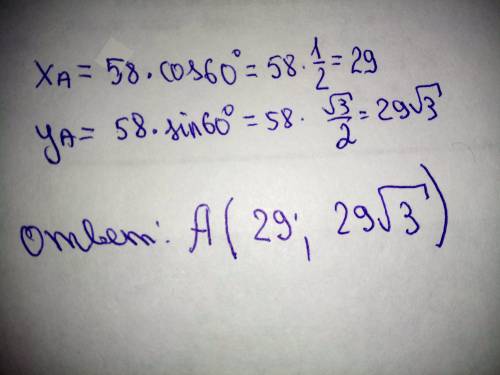 xA = 58 · cos60° = 58 · 1/2 = 29
yA = 58 · sin60° = 58 · √3/2 = 29√3
Ответ: A( 29 ; 29√3 )